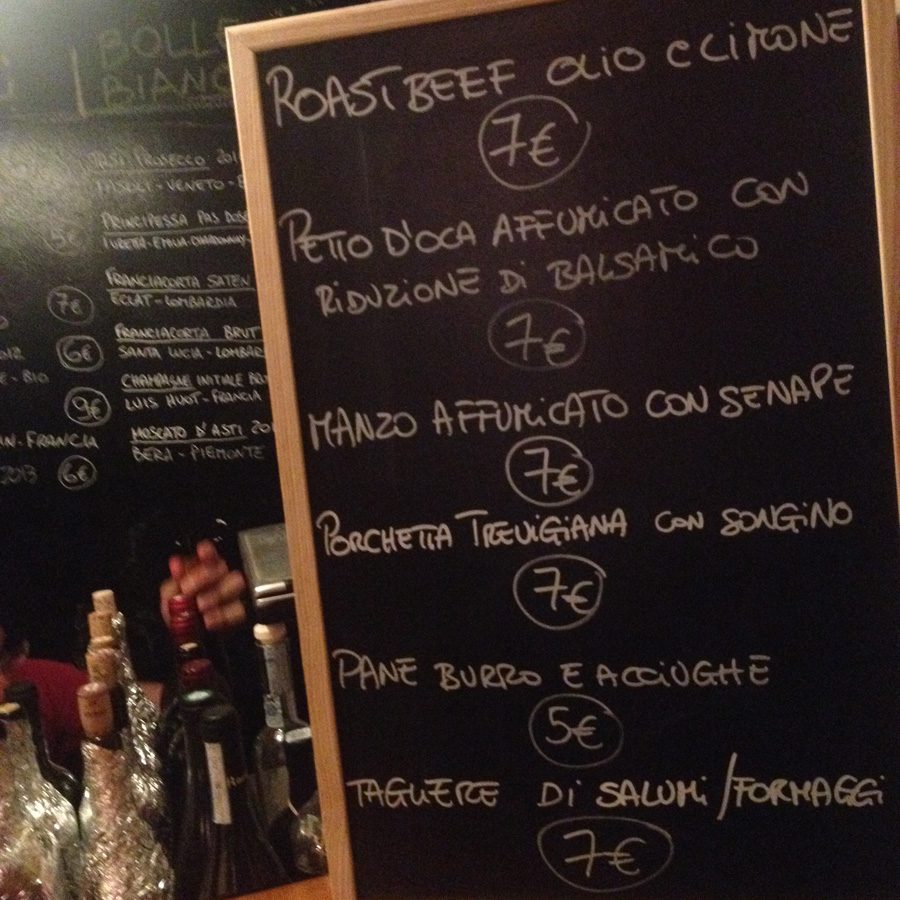 BOLLE
BIANC
PROSECCO 201
FASOLI - VENETO - B
PRINCIPESSA PAS DOSE
5€
LURETTA - EMILIA - CHARDONNAY -
FRANCIACORTA SATEN
7€
ECLAT - LOMBARDIA
FRANCIACORTA BRUT
6€
SANTA LUCIA - LOMBAR
- BIO
CHAMPAGNE INITIALE BRU
9€
LUIS HUOT - FRANCIA
- FRANCIA
MOSCATO D'ASTI 201
BERA - PIEMONTE
2013
6€
ROASTBEEF OLIO E LIMONE
7€
PETTO D'OCA AFFUMICATO CON
RIDUZIONE DI BALSAMICO
7€
MANZO AFFUMICATO CON SENAPE
7€
PORCHETTA TREVIGIANA CON SONGINO
7€
PANE BURRO E ACCIUGHE
5€
TAGLIERE DI SALUMI/FORMAGGI
7€